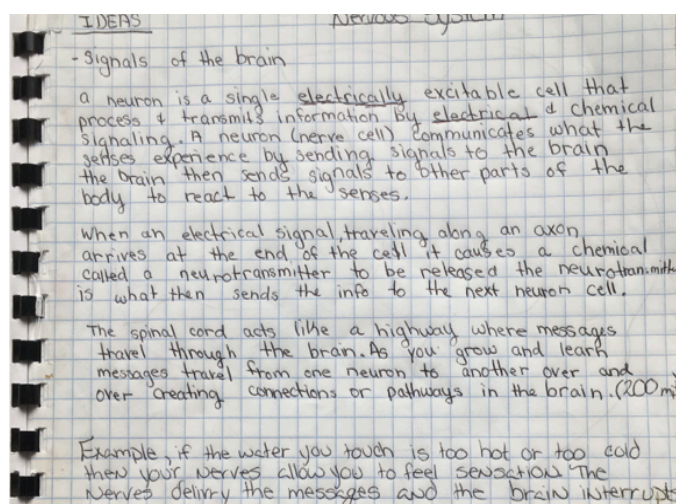 IDEAS Nervous System
- Signals of the brain
a neuron is a single electrically excitable cell that
process & transmits information by electrical & chemical
signaling. A neuron (nerve cell) communicates what the
senses experience by sending signals to the brain
the brain then sends signals to other parts of the
body to react to the senses.
When an electrical signal, traveling along an axon
arrives at the end of the cell it causes a chemical
called a neurotransmitter to be released the neurotransmitte
is what then sends the info to the next neuron cell.
The spinal cord acts like a highway where messages
travel through the brain. As you grow and learn
messages travel from one neuron to another over and
over creating connections or pathways in the brain. (200 m
Example, if the water you touch is too hot or too cold
then your nerves allow you to feel sensation The
Nerves delivry the messages and the brain interrupt